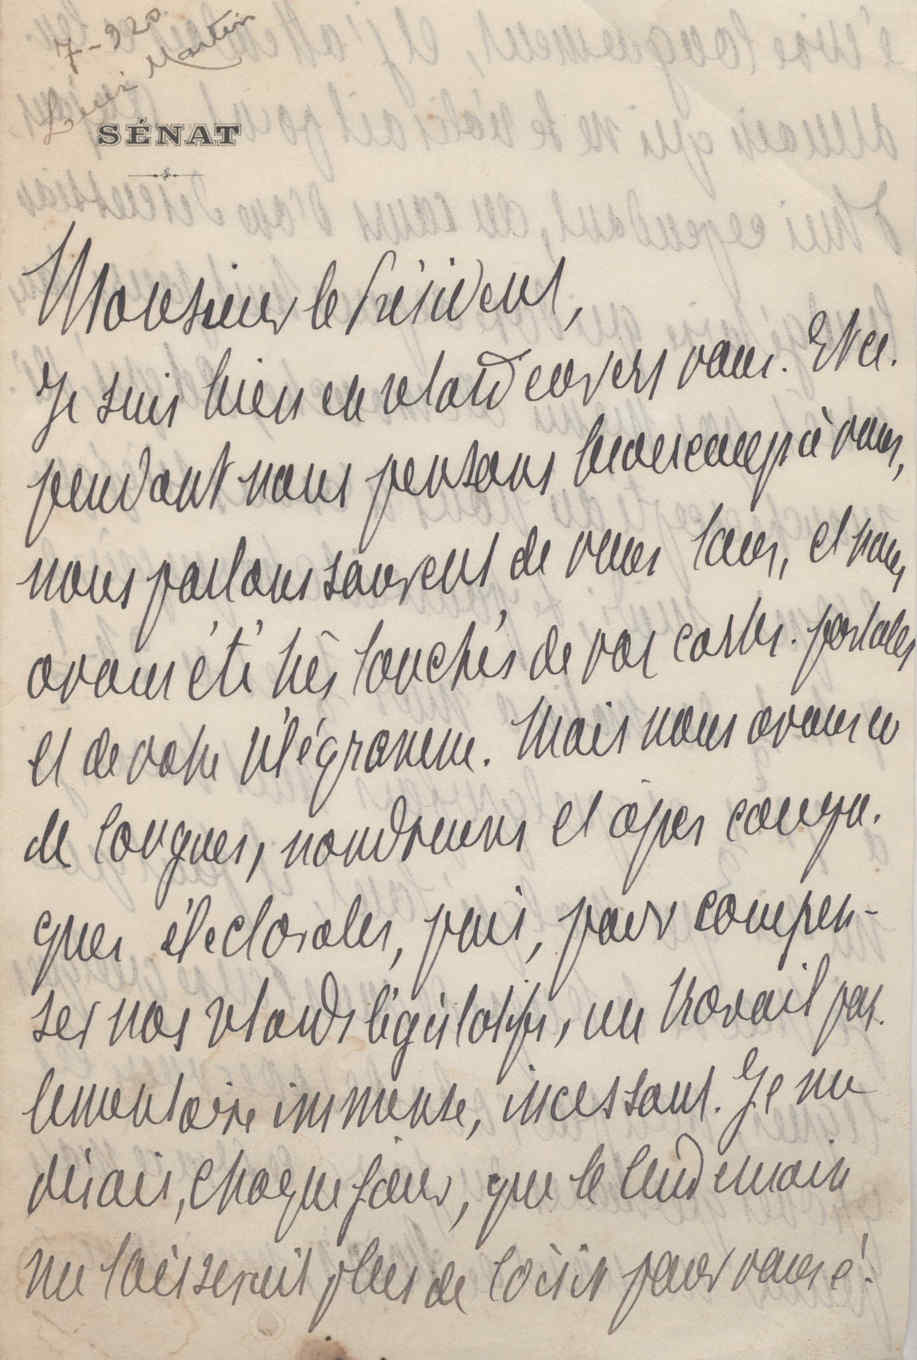 7-920
Louis Martin
SÉNAT
Monsieur le Président,
Je suis bien en retard envers vous. Et ce-
pendant nous pensons beaucoup à vous,
nous parlons souvent de vous tous, et nous
avons été très touchés de vos cartes-postales
et de votre télégramme. Mais nous avons eu
de longues, nombreuses et âpres campa-
gnes électorales, puis, pour compen-
ser nos retards législatifs, un travail par-
lementaire immense, incessant. Je me
disais, chaque jour, que le lendemain
me laisserait plus de loisir pour vous é-